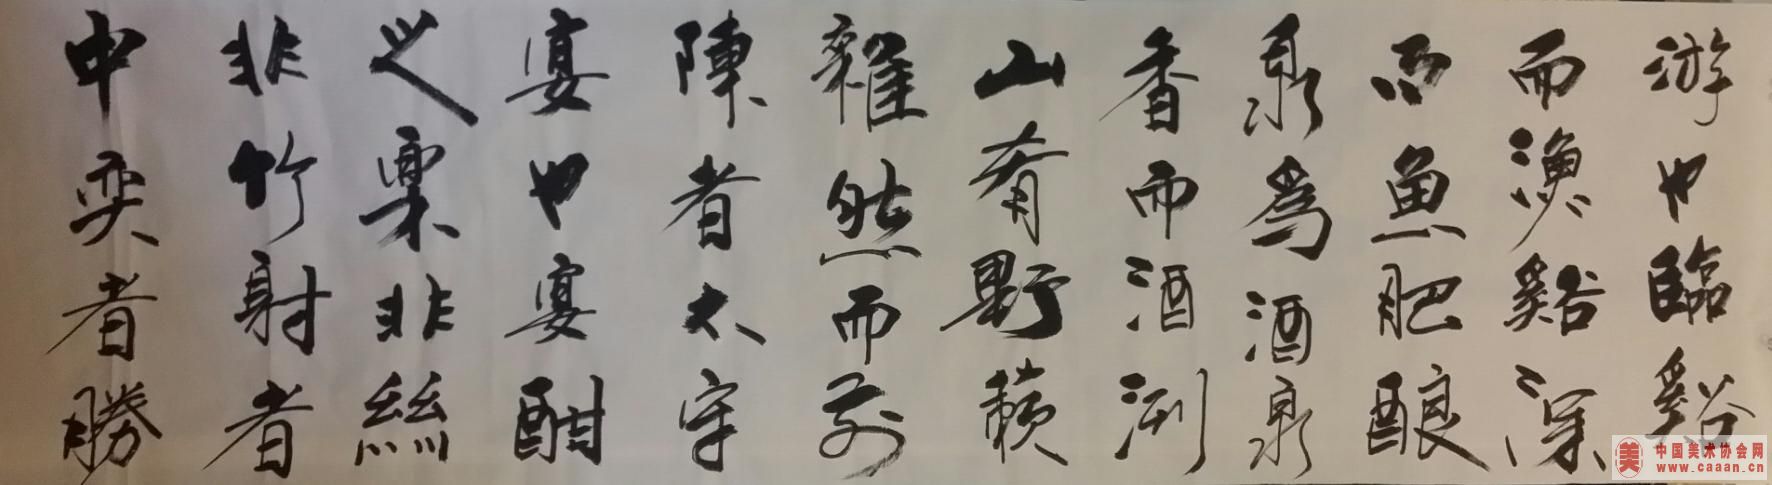 游也臨谿
而漁谿深
而魚肥酿
泉為酒泉
香而酒洌
山肴野蔌
雜然而前
陳者太守
宴也宴酣
之樂非絲
非竹射者
中奕者勝
美
中国美术协会网
www.caaan.cn